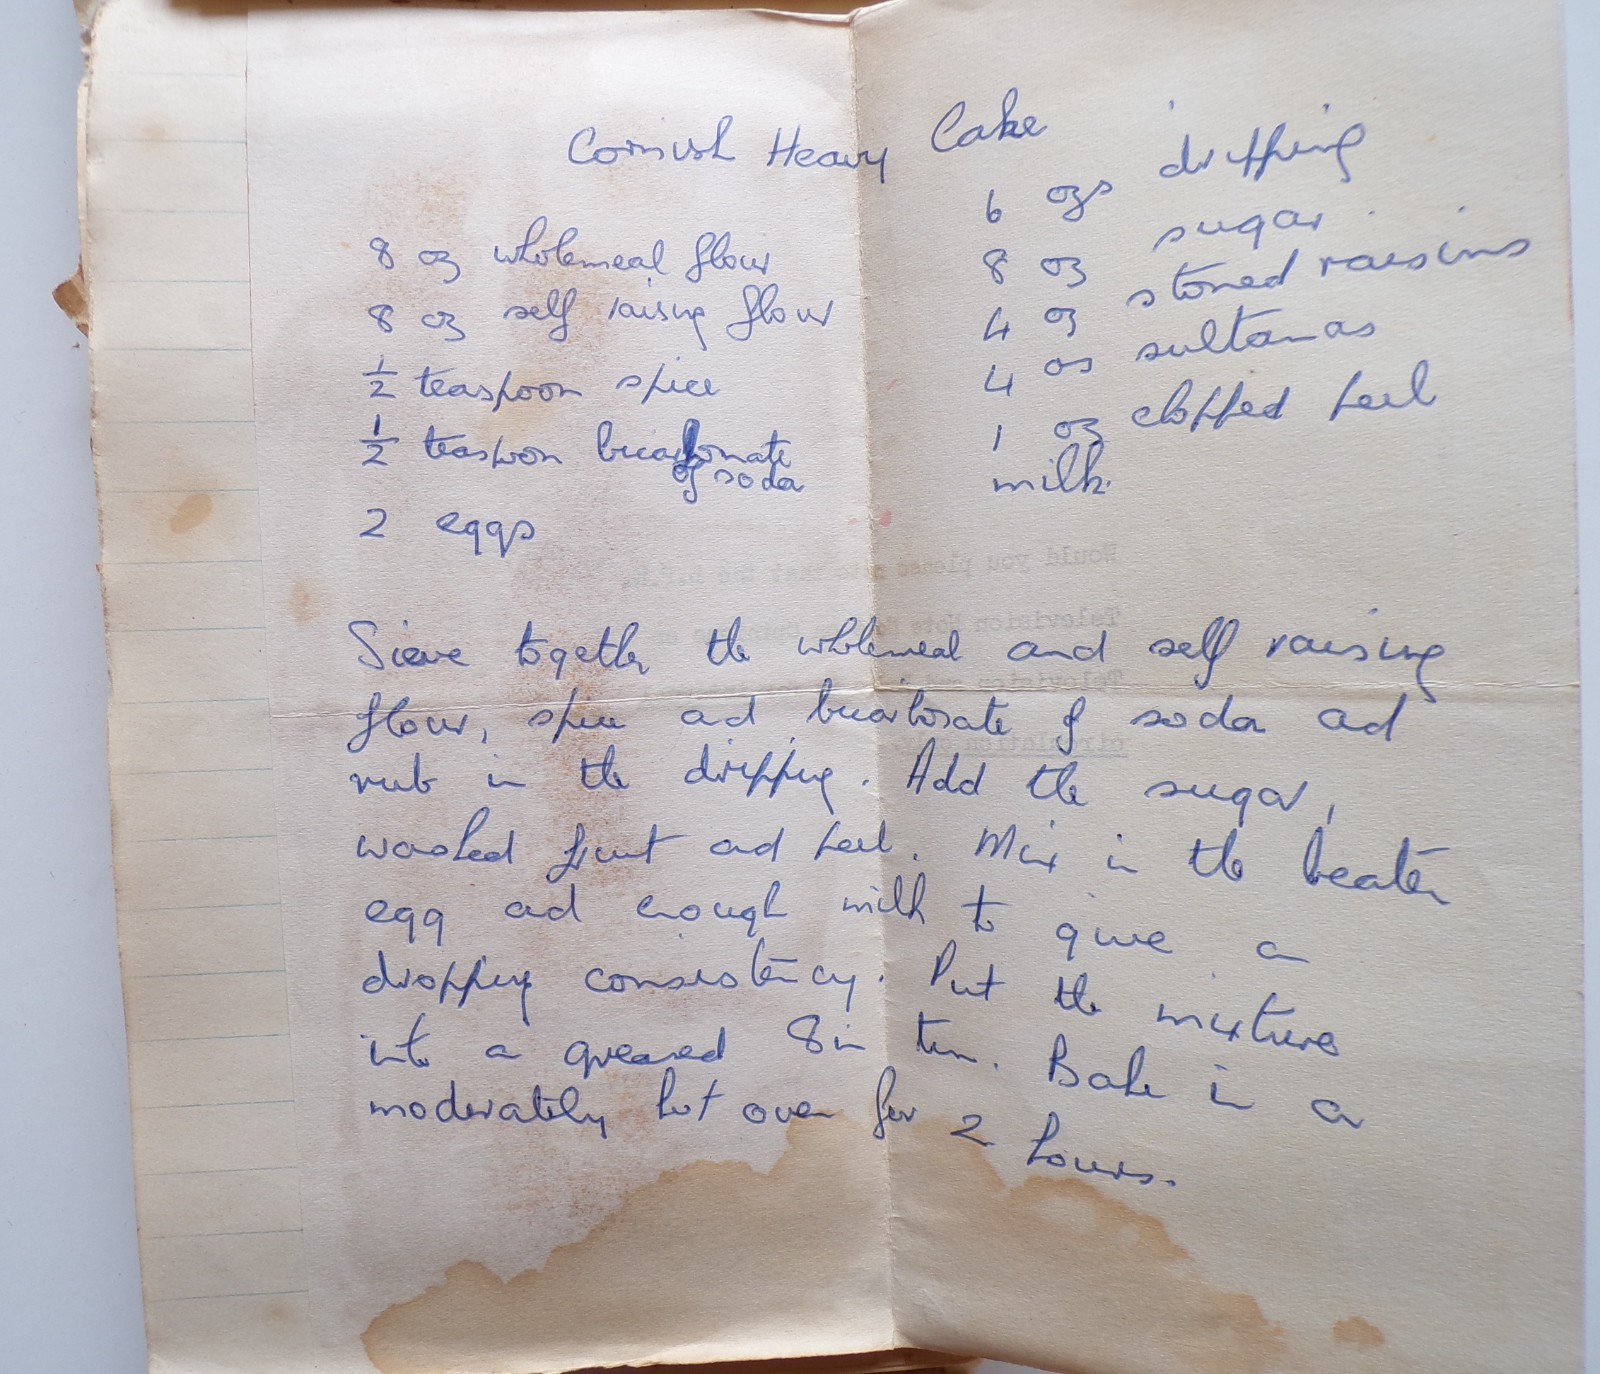 Cornish Heavy Cake
8 oz wholemeal flour
8 oz self raising flour
½ teaspoon spice
½ teaspoon bicarbonate
of soda
2 eggs
6 ozs dripping
8 oz sugar
4 oz stoned raisins
4 os sultanas
1 oz clopped peel
milk.
Would you please note that the
Television
Television and
circulation
Sieve together the wholemeal and self raising
flour, spice ad bicarbosate of soda ad
rub in the dripping. Add the sugar,
washed fruit ad peel. Mix in the beaten
egg ad enough milk to give a
dropping consistency. Put the mixture
into a greased 8in tin. Bake in a
moderately hot oven for 2 hours.